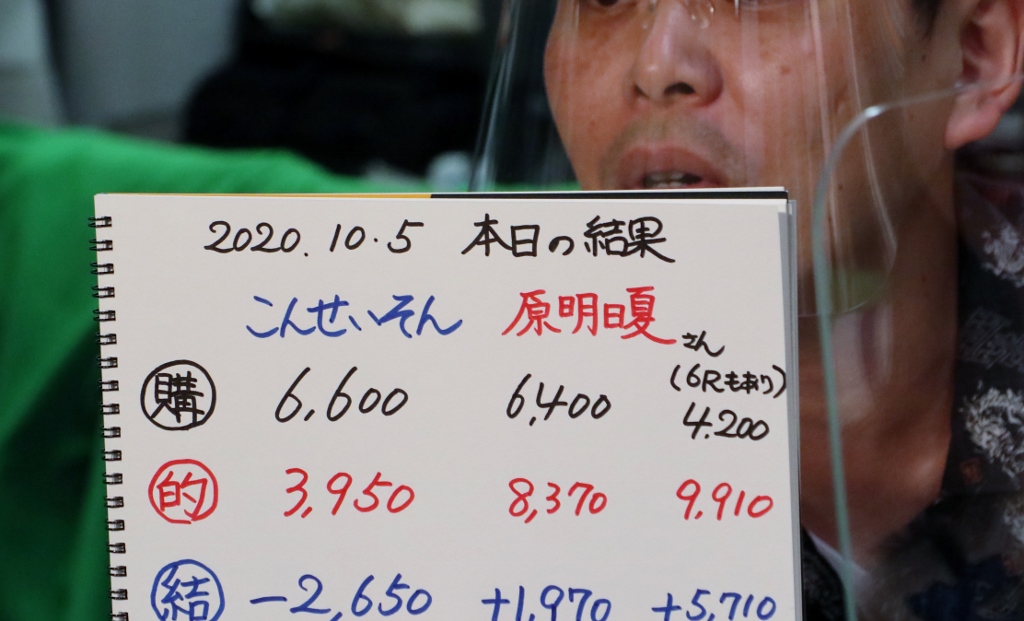 2020.10.5 本日の結果
こんせいそん 原明日夏さん
(6Rもあり)
購 6,600 6,400 4.200
的 3,950 8,370 9,910
結 -2,650 +1,970 +5,710